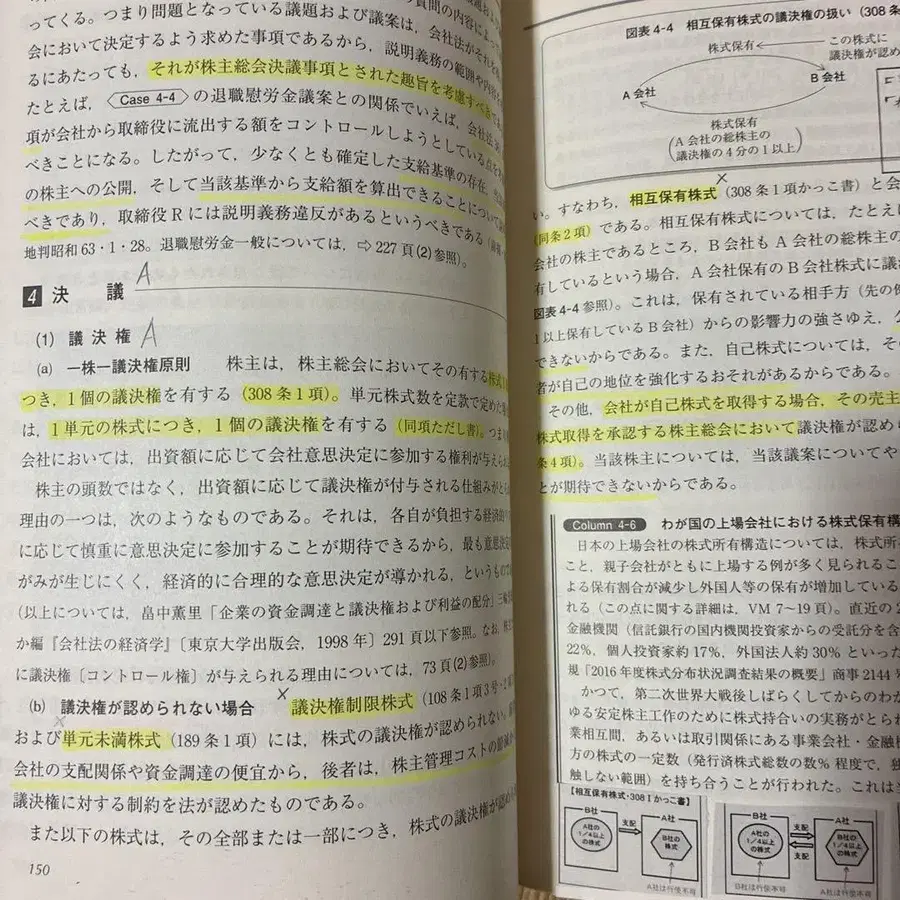 ってくる。つまり問題となっている議題および議案は，会社法がそれ
会において決定するよう求めた事項であるから，説明義務の範囲や内容
るにあたっても，それが株主総会決議事項とされた趣旨を考慮すべき
たとえば，Case 4-4 の退職慰労金議案との関係でいえば，会社法
項が会社から取締役に流出する額をコントロールしようとしている
べきことになる。したがって，少なくとも確定した支給基準の存在，
の株主への公開，そして当該基準から支給額を算出できることについて
べきであり，取締役Rには説明義務違反があるというべきである
地判昭和63・1・28。退職慰労金一般については，⇨227頁(2)参照)。
4 決 議 A
(1) 議決権 A
(a) 一株一議決権原則 株主は，株主総会においてその有する株式
つき，1個の議決権を有する（308条1項）。単元株式数を定款で定めた
は，1単元の株式につき，1個の議決権を有する（同項ただし書）。つま
会社においては，出資額に応じて会社意思決定に参加する権利が与えられ
株主の頭数ではなく，出資額に応じて議決権が付与される仕組みが
理由の一つは，次のようなものである。それは，各自が負担する経済的
に応じて慎重に意思決定に参加することが期待できるから，最も意思決定
がみが生じにくく，経済的に合理的な意思決定が導かれる，という
(以上については，畠中薫里「企業の資金調達と議決権および利益の配分」三輪
か編『会社法の経済学』〔東京大学出版会，1998年〕291頁以下参照。なお，
に議決権〔コントロール権〕が与えられる理由については，73頁(2)参照)。
(b) 議決権が認められない場合 × 議決権制限株式（108条1項3号・
および単元未満株式（189条1項）には，株式の議決権が認められない。
会社の支配関係や資金調達の便宜から，後者は，株主管理コストの節減
議決権に対する制約を法が認めたものである。
また以下の株式は，その全部または一部につき，株式の議決権が認め
150
図表4-4 相互保有株式の議決権の扱い（308条
株式保有
この株式に
議決権が認め
A会社
B会社
株式保有
(A会社の総株主の
議決権の4分の1以上)
×
い。すなわち，相互保有株式（308条1項かっこ書）と会
(同条2項)である。相互保有株式については，たとえば
会社の株主であるところ，B会社もA会社の総株主の
有しているという場合，A会社保有のB会社株式に議
図表4-4参照)。これは，保有されている相手方（先の例
1以上保有しているB会社）からの影響力の強さゆえ，
できないからである。また，自己株式については，そ
者が自己の地位を強化するおそれがあるからである。
その他，会社が自己株式を取得する場合，その売主
株式取得を承認する株主総会において議決権が認め
条4項)。当該株主については，当該議案についてや
とが期待できないからである。
Column 4-6 わが国の上場会社における株式保有構
日本の上場会社の株式所有構造については，株式所
こと，親子会社がともに上場する例が多く見られるこ
よる保有割合が減少し外国人等の保有が増加している
れる（この点に関する詳細は，VM 7〜19頁）。直近の2
金融機関（信託銀行の国内機関投資家からの受託分を含
22%，個人投資家約17%，外国法人約30%といった
規「2016年度株式分布状況調査結果の概要」商事2144
かつて，第二次世界大戦後しばらくしてからのわが
ゆる安定株主工作のために株式持合いの実務がとられ
業相互間，あるいは取引関係にある事業会社・金融機
方の株式の一定数（発行済株式総数の数%程度で，独
触しない範囲）を持ち合うことが行われた。これは
【相互保有株式・308Ⅰかっこ書】
B社
A社の
1/4以上
の株式
支配
A社
B社の
株式
A社は行使不可
B社
A社の
1/4以上
の株式
支配
支配
A社
B社の
1/4以上
の株式
B社は行使不可
A社は行使不可